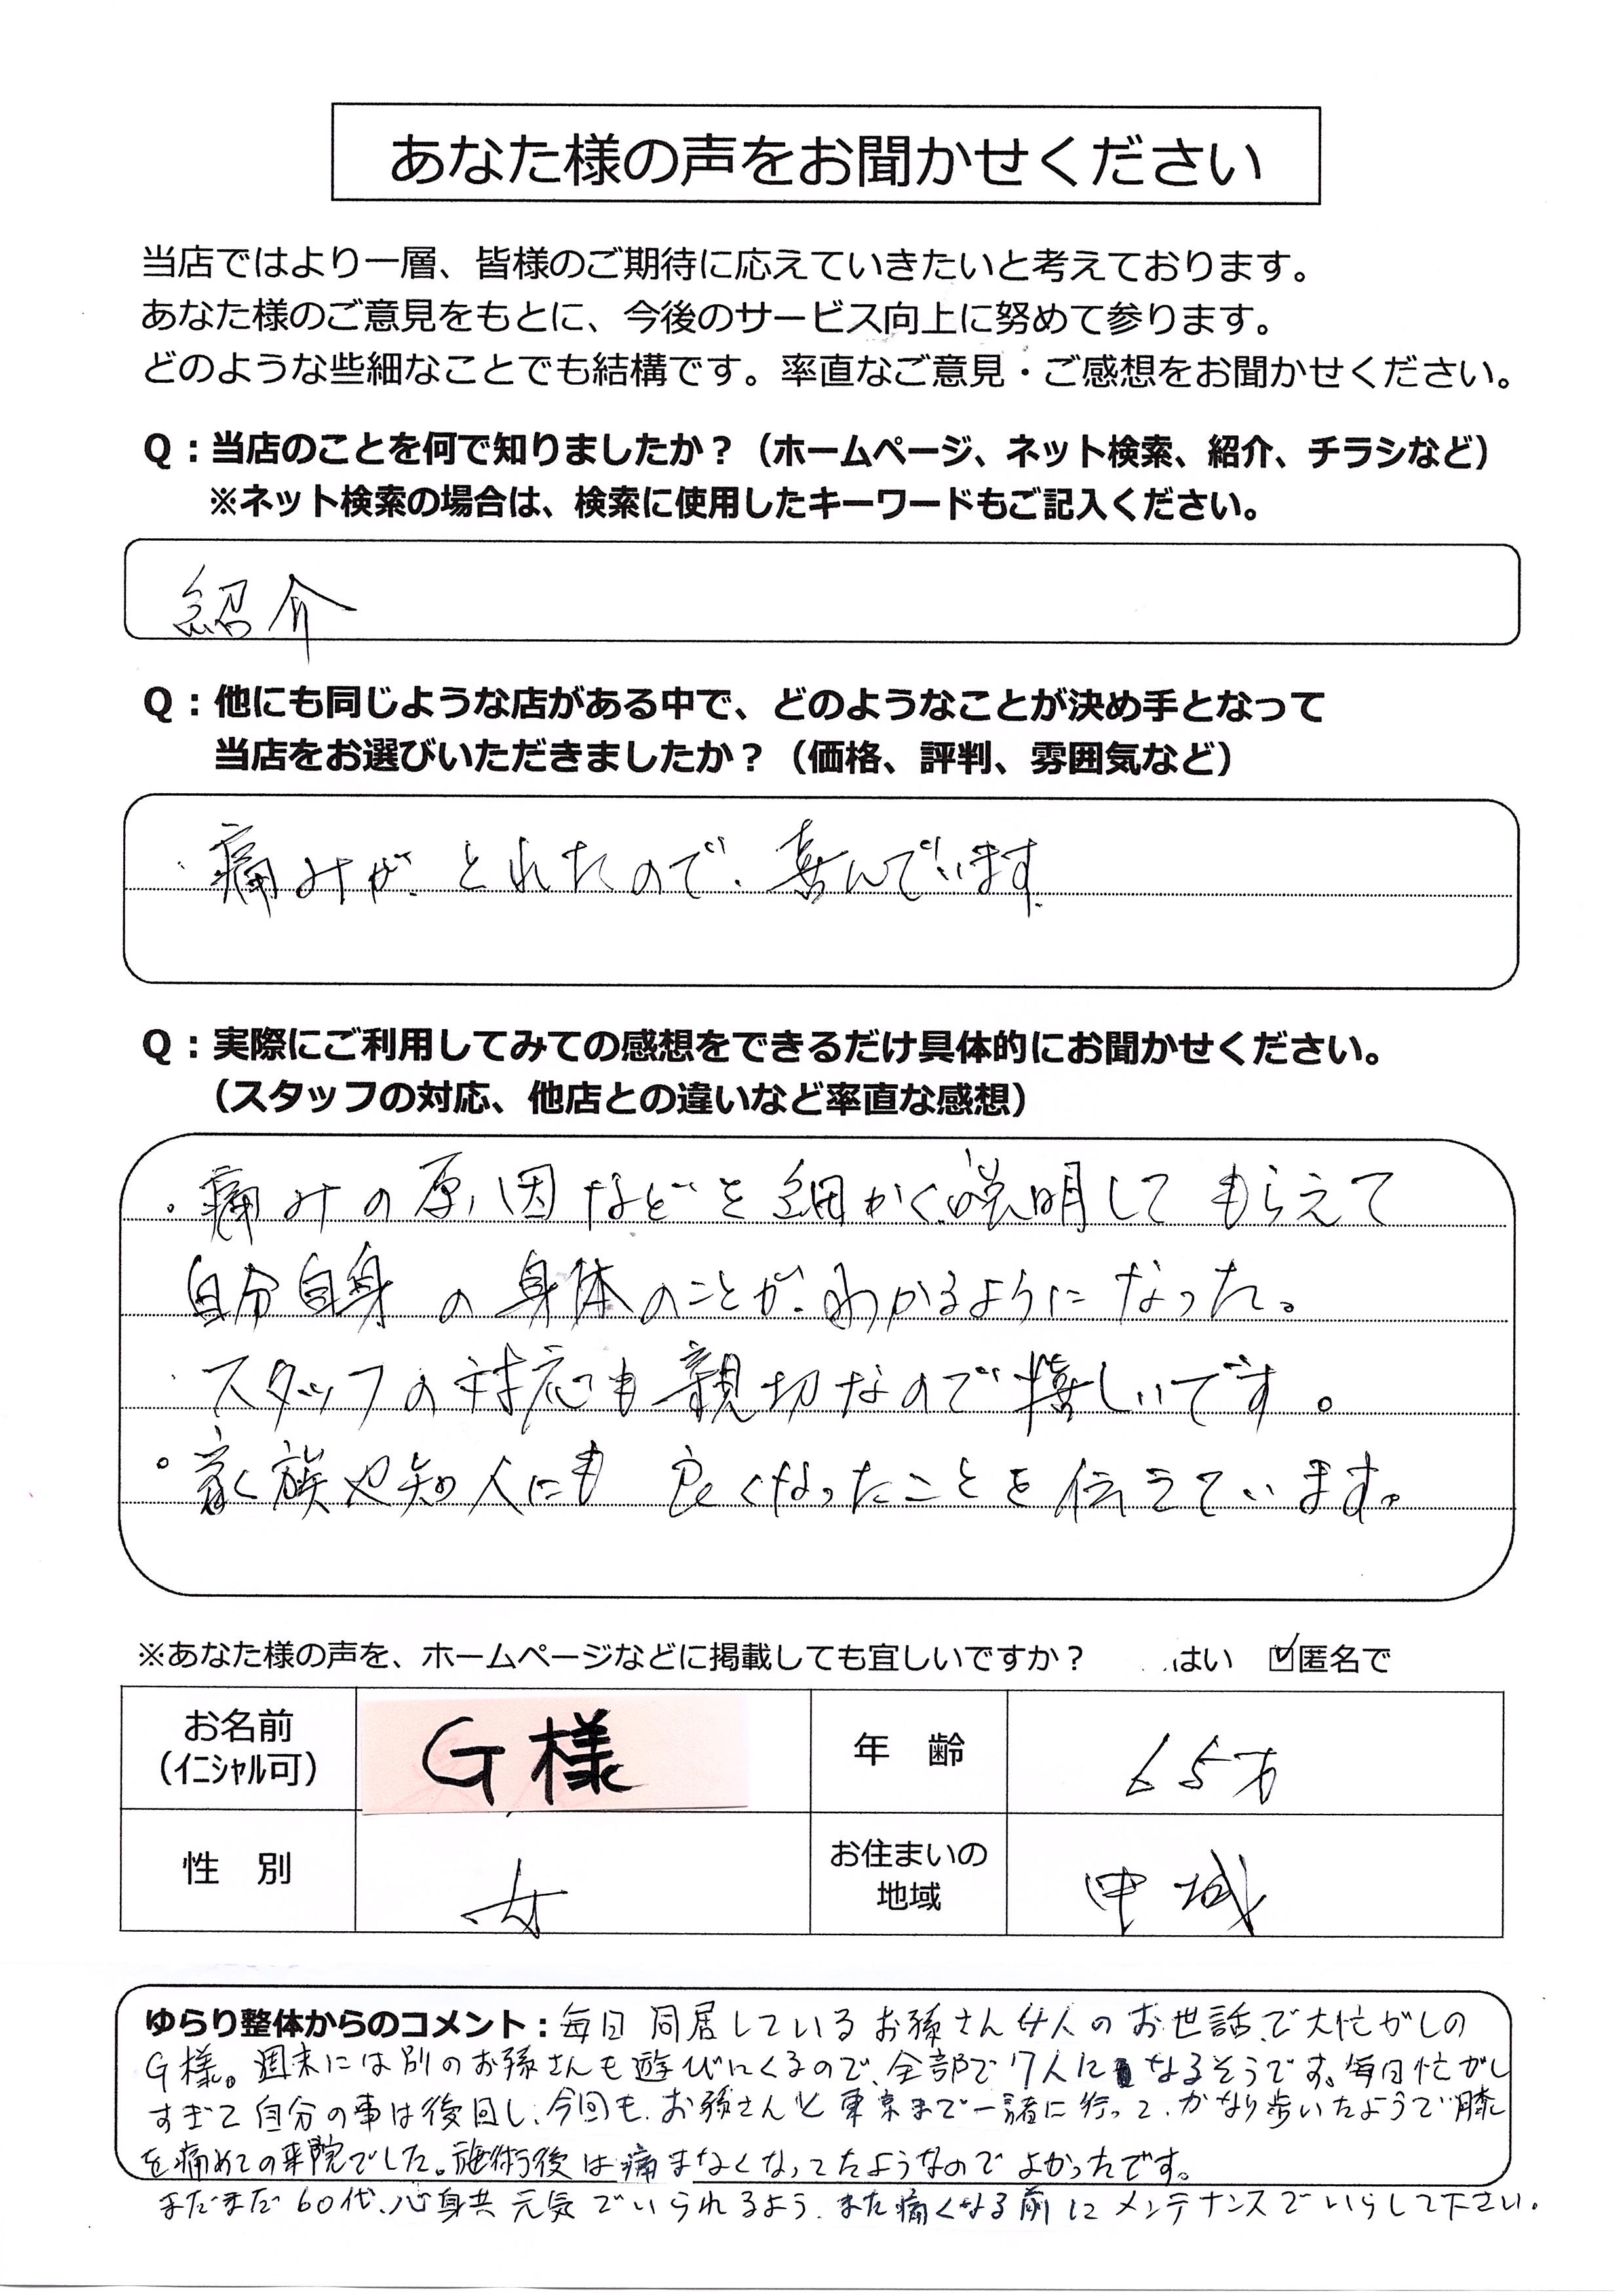 あなた様の声をお聞かせください
当店ではより一層、皆様のご期待に応えていきたいと考えております。
あなた様のご意見をもとに、今後のサービス向上に努めて参ります。
どのような些細なことでも結構です。率直なご意見・ご感想をお聞かせください。
Q：当店のことを何で知りましたか？（ホームページ、ネット検索、紹介、チラシなど）
※ネット検索の場合は、検索に使用したキーワードもご記入ください。
紹介
Q：他にも同じような店がある中で、どのようなことが決め手となって
当店をお選びいただきましたか？（価格、評判、雰囲気など）
・痛みが、とれたので、喜んでいます
Q：実際にご利用してみての感想をできるだけ具体的にお聞かせください。
（スタッフの対応、他店との違いなど率直な感想）
・痛みの原因などを細かく説明してもらえて
自分自身の身体のことが、わかるようになった。
・スタッフの対応も親切なので嬉しいです。
・家族や知人にも良くなったことを伝えています。
※あなた様の声を、ホームページなどに掲載しても宜しいですか？　はい　☑匿名で
お名前 G様 年　齢 65才
（ｲﾆｼｬﾙ可）
性　別 女 お住まいの 中城
地域
ゆらり整体からのコメント：毎日同居しているお孫さん4人のお世話で大忙がしの
G様。週末には別のお孫さんも遊びにくるので、全部で7人になるそうです。毎日忙がし
すぎて自分の事は後回し、今回も、お孫さんと東京まで一緒に行って、かなり歩いたようで膝
を痛めての来院でした。施術後は痛まなくなってたようなのでよかったです。
まだまだ60代、心身共元気でいられるよう、また痛くなる前にメンテナンスでいらして下さい。